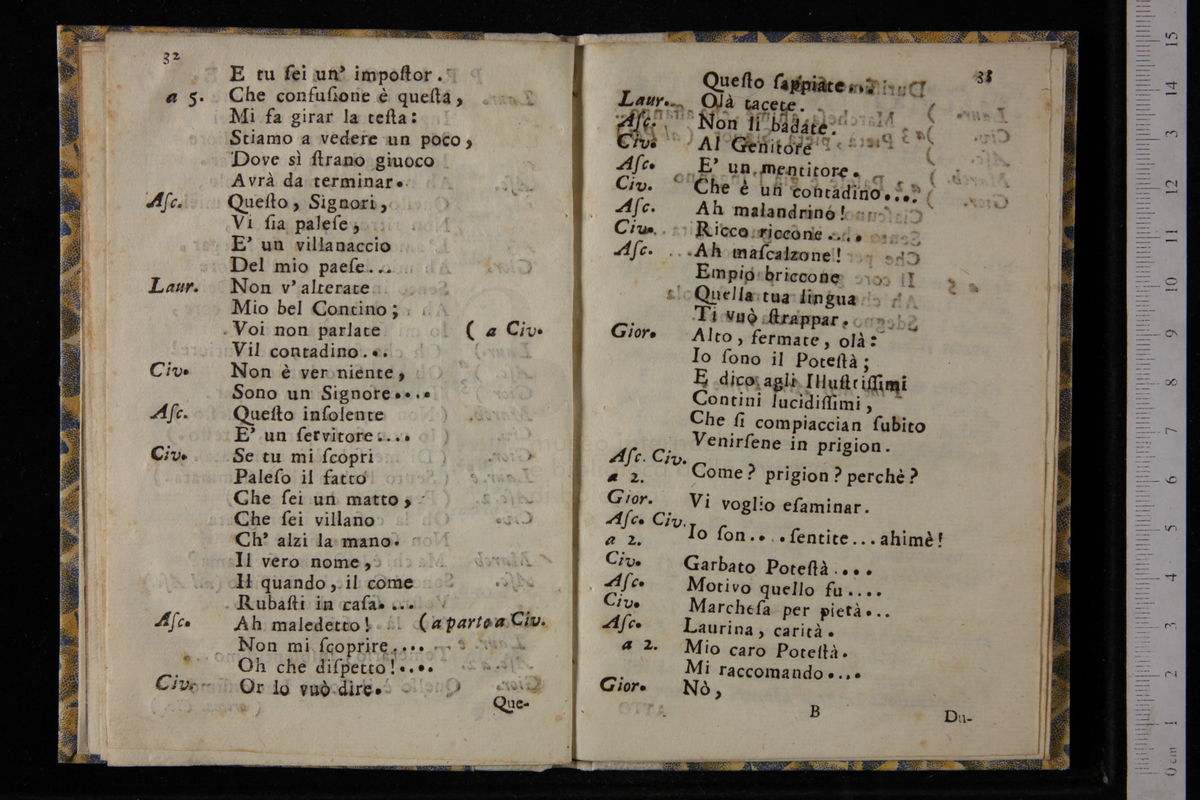 32
E tu ſei un' impoſtor.
a 5. Che confuſione è queſta,
Mi fa girar la teſta:
Stiamo a vedere un poco,
Dove sì ſtrano giuoco
Avrà da terminar.
Aſc. Queſto, Signori,
Vi ſia paleſe,
E' un villanaccio
Del mio paeſe...
Laur. Non v' alterate
Mio bel Contino;
Voi non parlate ( a Civ.
Vil contadino...
Civ. Non è ver niente,
Sono un Signore....
Aſc. Queſto inſolente
E' un ſervitore....
Civ. Se tu mi ſcopri
Paleſo il fatto
Che ſei un matto,
Che ſei villano
Ch' alzi la mano.
Il vero nome,
Il quando, il come
Rubaſti in caſa....
Aſc. Ah maledetto! (a parte a Civ.
Non mi ſcoprire....
Oh che diſpetto!....
Civ. Or lo vuò dire.
Que-
33
Queſto ſappiate...
Laur. Olà tacete.
Aſc. Non li badate.
Civ. Al Genitore
Aſc. E' un mentitore.
Civ. Che è un contadino....
Aſc. Ah malandrino!
Civ. Ricco riccone....
Aſc. Ah maſcalzone!
Empio briccone
Quella tua lingua
Ti vuò ſtrappar.
Gior. Alto, fermate, olà:
Io ſono il Poteſtà;
E dico agli Illuſtriſſimi
Contini lucidiſſimi,
Che ſi compiaccian ſubito
Venirſene in prigion.
Aſc. Civ.
a 2. Come? prigion? perchè?
Gior. Vi voglio eſaminar.
Aſc. Civ.
a 2. Io ſon....ſentite...ahimè!
Civ. Garbato Poteſtà....
Aſc. Motivo quello fu....
Civ. Marcheſa per pietà...
Aſc. Laurina, carità.
a 2. Mio caro Poteſtà.
Mi raccomando....
Gior. Nò,
B
Du-